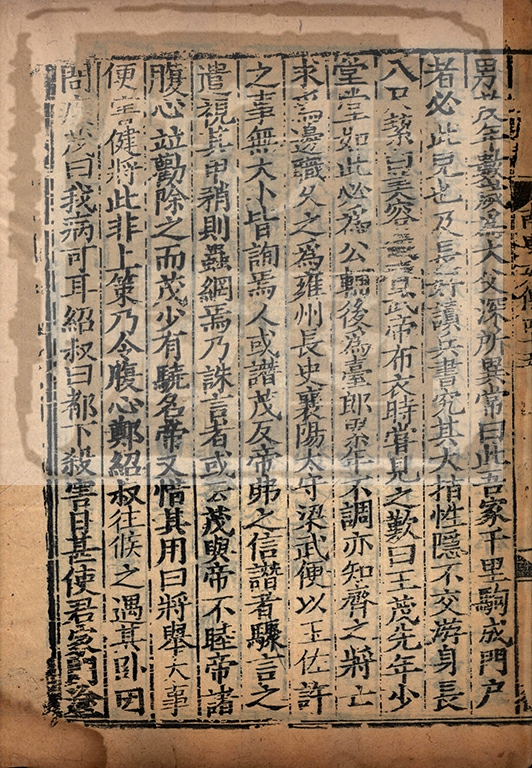 男茂年數歲爲大父深所異常曰此吾家千里駒成門户
者必此兒也及長好讀兵書究其大指性隱不交游身長
八尺絜白美容武帝布衣時嘗見之歎曰王茂先年少
堂堂如此必爲公輔後爲臺郎累年不調亦知齊之將亡
求爲邊職久之爲雍州長史襄陽太守梁武便以王佐許
之事無大小皆詢焉人或譖茂反帝弗之信譖者驟言之
遣視其甲矟則蟲網焉乃誅言者或云茂與帝不睦帝諸
腹心並勸除之而茂少有驍名帝又惜其用曰將舉大事
便害健將此非上策乃令腹心鄭紹叔往候之遇其卧因
問疾茂曰我病可耳紹叔曰都下殺害日甚使君家門塗